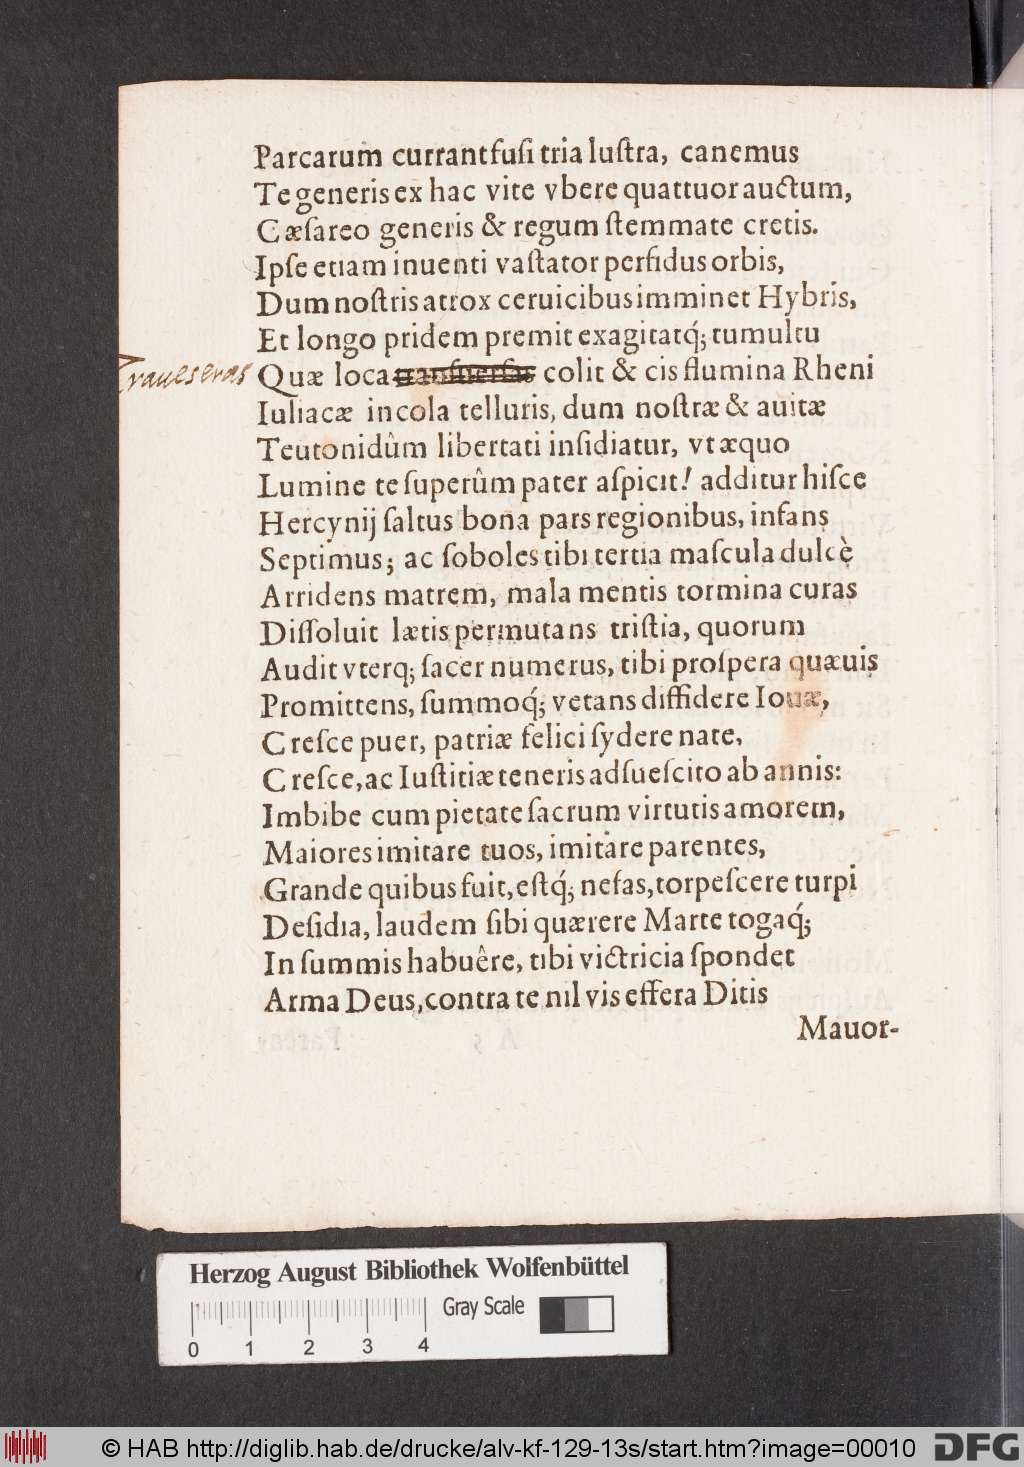 Parcarum currant fusi tria lustra, canemus
Te generis ex hac vite vbere quattuor auctum,
Cæsareo generis & regum stemmate cretis.
Ipse etiam inuenti vastator perfidus orbis,
Dum nostris atrox ceruicibus imminet Hybris,
Et longo pridem premit exagitatq́; tumultu
Quæ loca transuersas colit & cis flumina Rheni
Iuliacæ incola telluris, dum nostræ & auitæ
Teutonidûm libertati insidiatur, vt æquo
Lumine te superûm pater aspicit! additur hisce
Hercynij saltus bona pars regionibus, infans
Septimus; ac soboles tibi tertia mascula dulcè
Arridens matrem, mala mentis tormina curas
Dissoluit lætis permutans tristia, quorum
Audit vterq; sacer numerus, tibi prospera quæuis
Promittens, summoq́; vetans diffidere Iouæ,
Cresce puer, patriæ felici sydere nate,
Cresce, ac Iustitiæ teneris adsuescito ab annis:
Imbibe cum pietate sacrum virtutis amorem,
Maiores imitare tuos, imitare parentes,
Grande quibus fuit, estq́; nefas, torpescere turpi
Desidia, laudem sibi quærere Marte togaq́;
In summis habuêre, tibi victricia spondet
Arma Deus, contra te nil vis effera Ditis
Mauor-
Herzog August Bibliothek Wolfenbüttel
Gray Scale
0 1 2 3 4
© HAB http://diglib.hab.de/drucke/alv-kf-129-13s/start.htm?image=00010
DFG